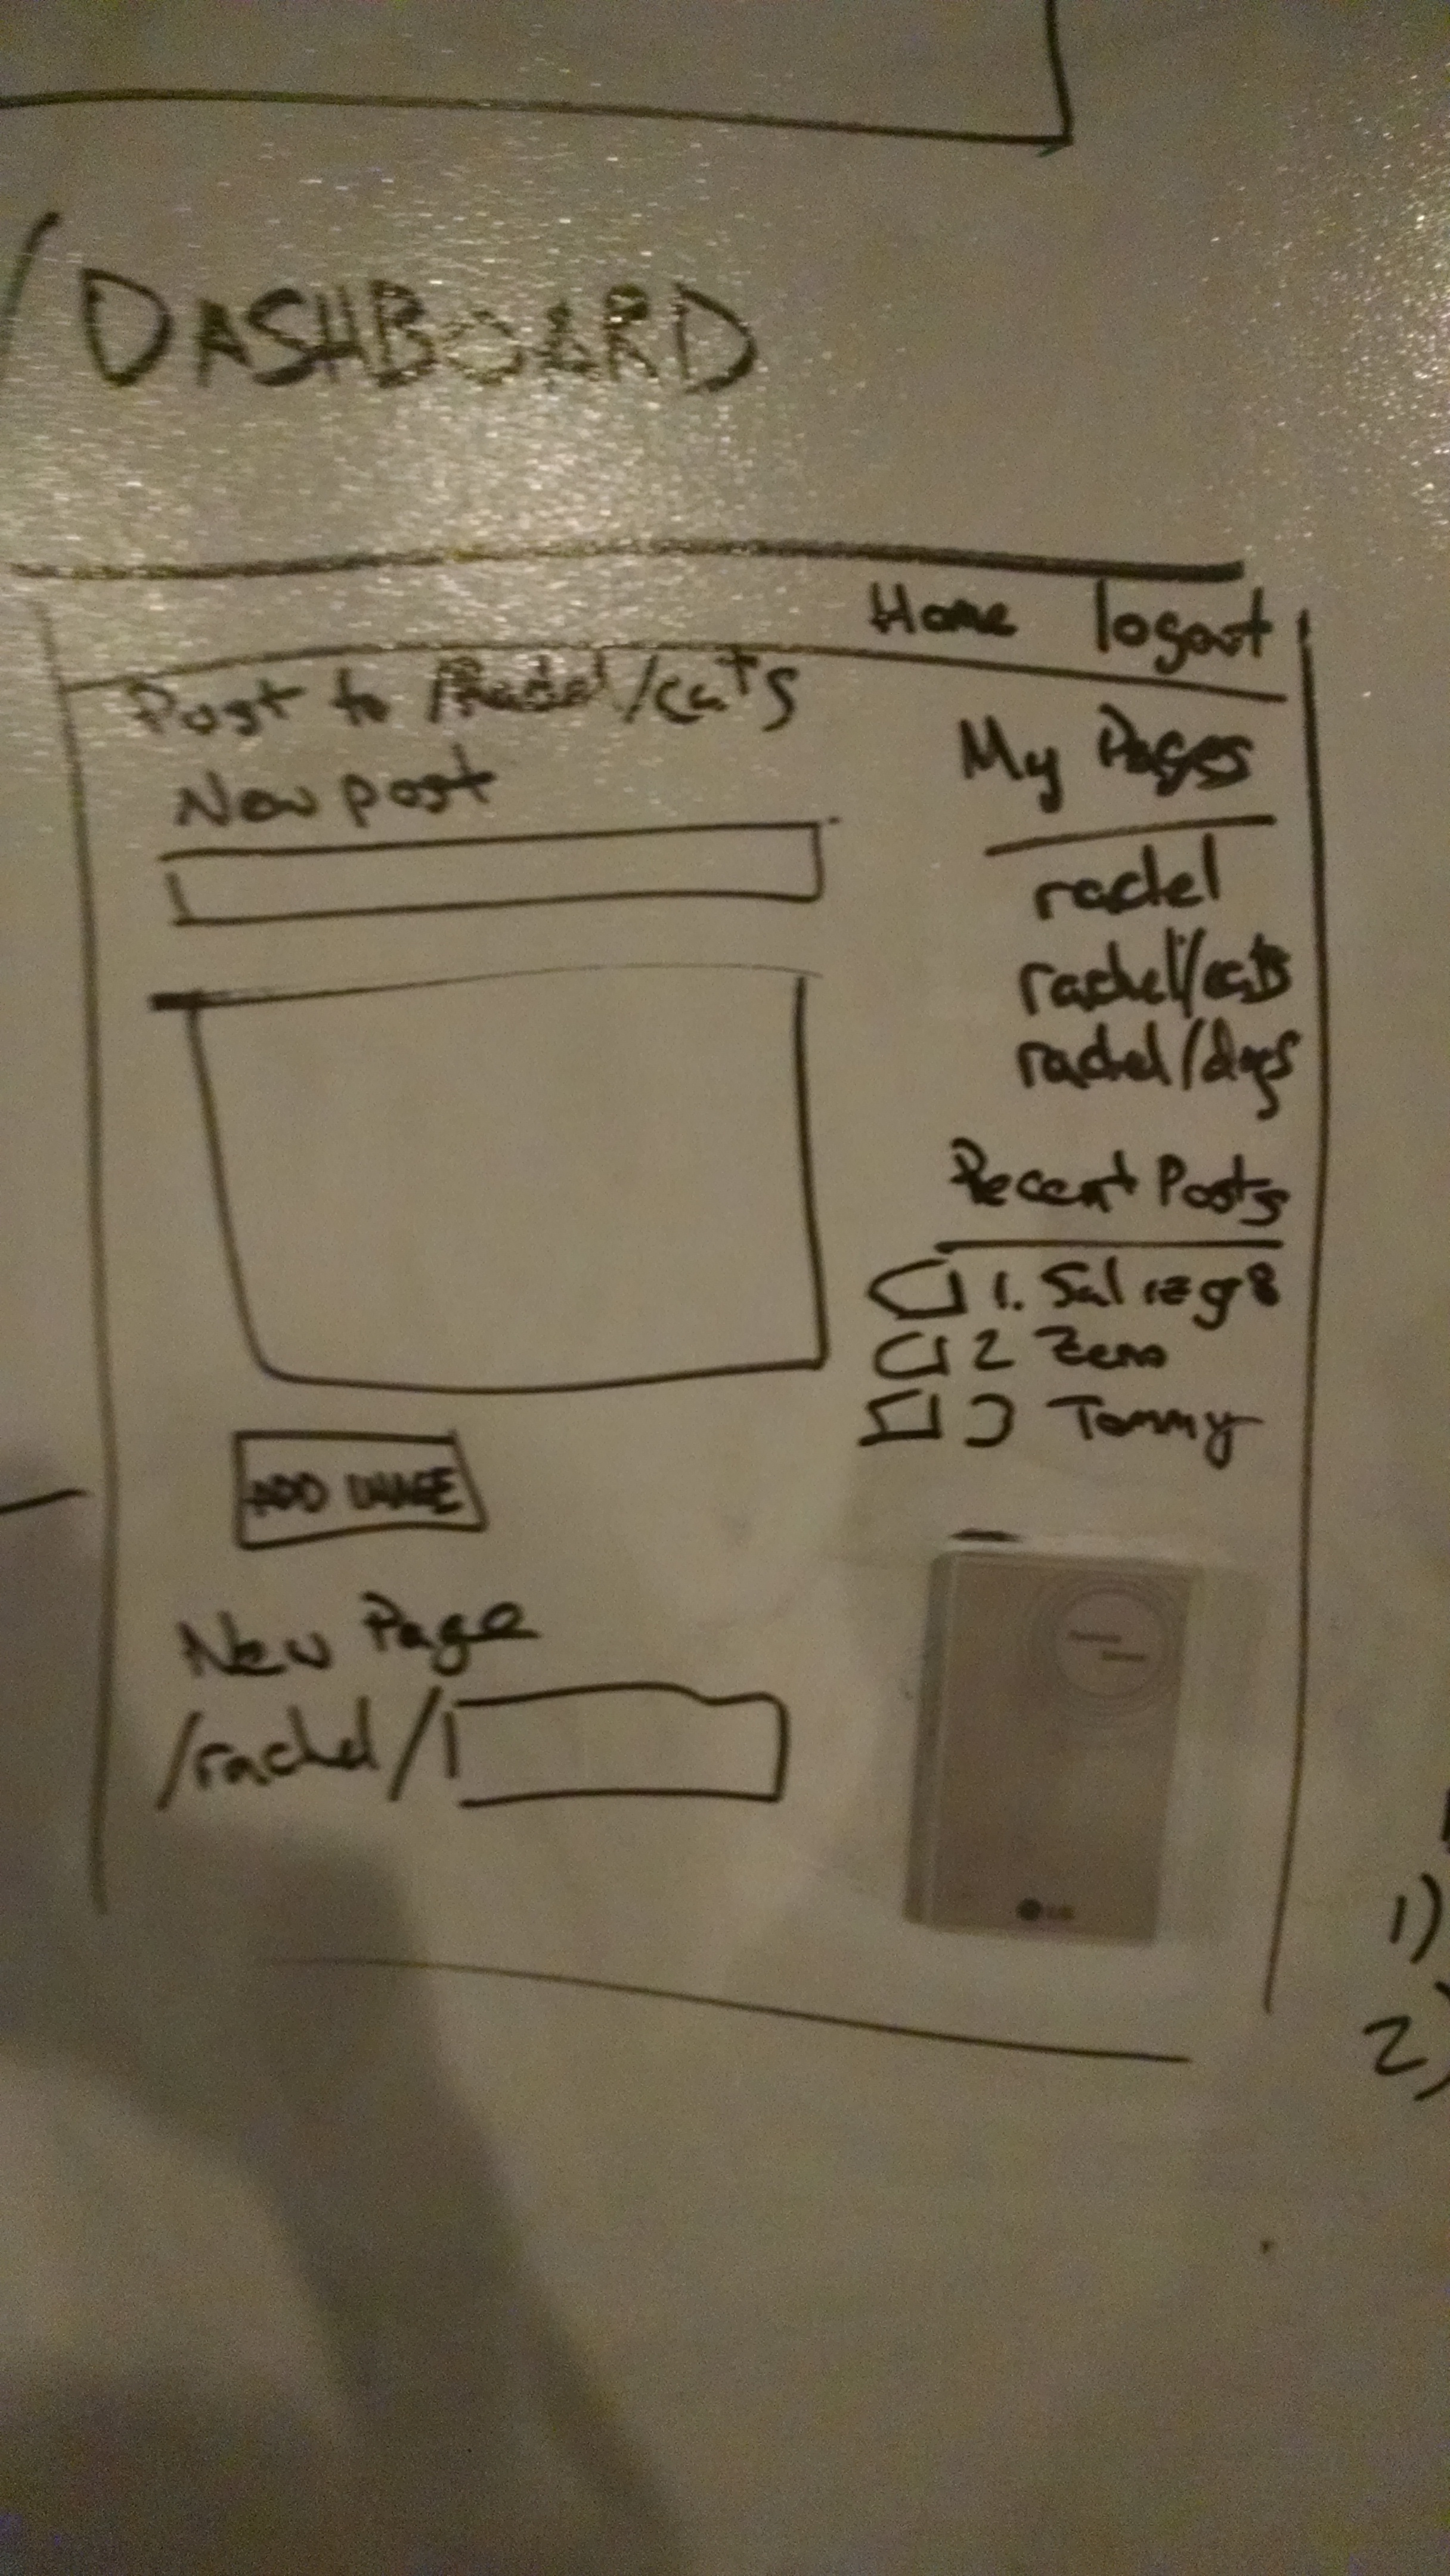 /DASHBOARD
Home logout
Post to /Rachel/cats
New post
ADD IMAGE
New Page
/rachel/
My Pages
rachel
rachel/cats
rachel/dogs
Recent Posts
1. Sal is gr8
2 Zeno
3 Tommy
LG
1)
2)